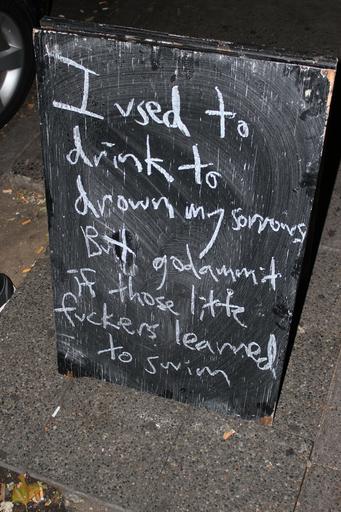 I used to
drink to
drown my sorrows
But godammit
if those little
fuckers learned
to swim